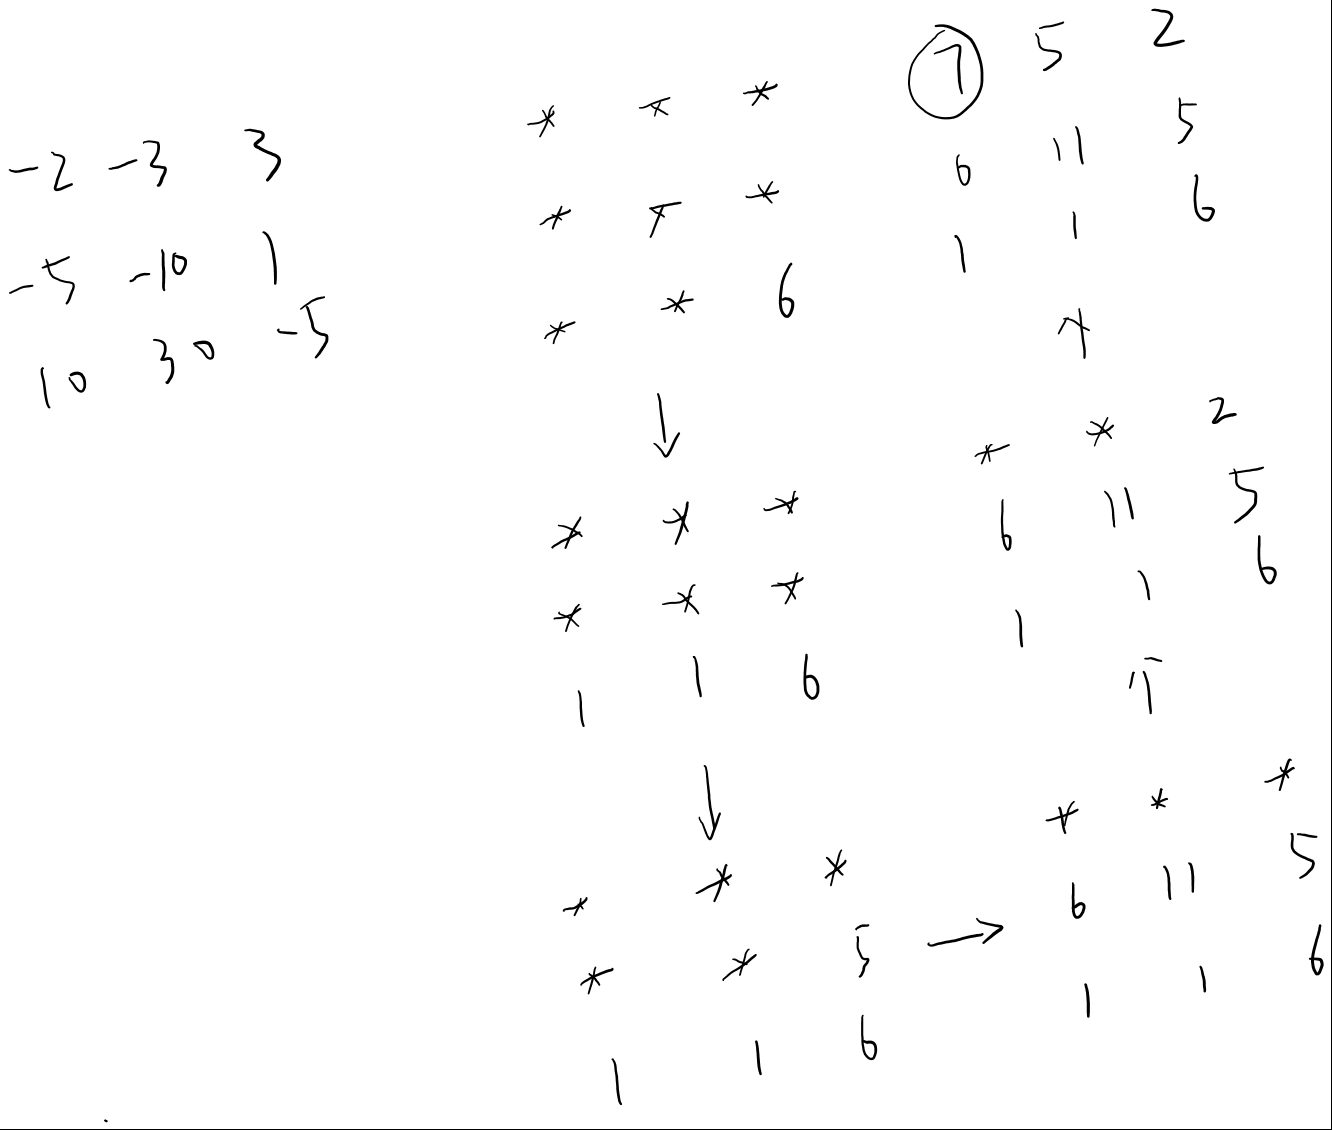 -2 -3 3
-5 -10 1
10 30 -5
* * *
* * *
* * 6
↓
* * *
* * *
1 1 6
↓
* * *
* * 5
1 1 6
→
* * *
6 11 5
1 1 6
↑
* * 2
6 11 5
1 1 6
↑
7 5 2
6 11 5
1 1 6